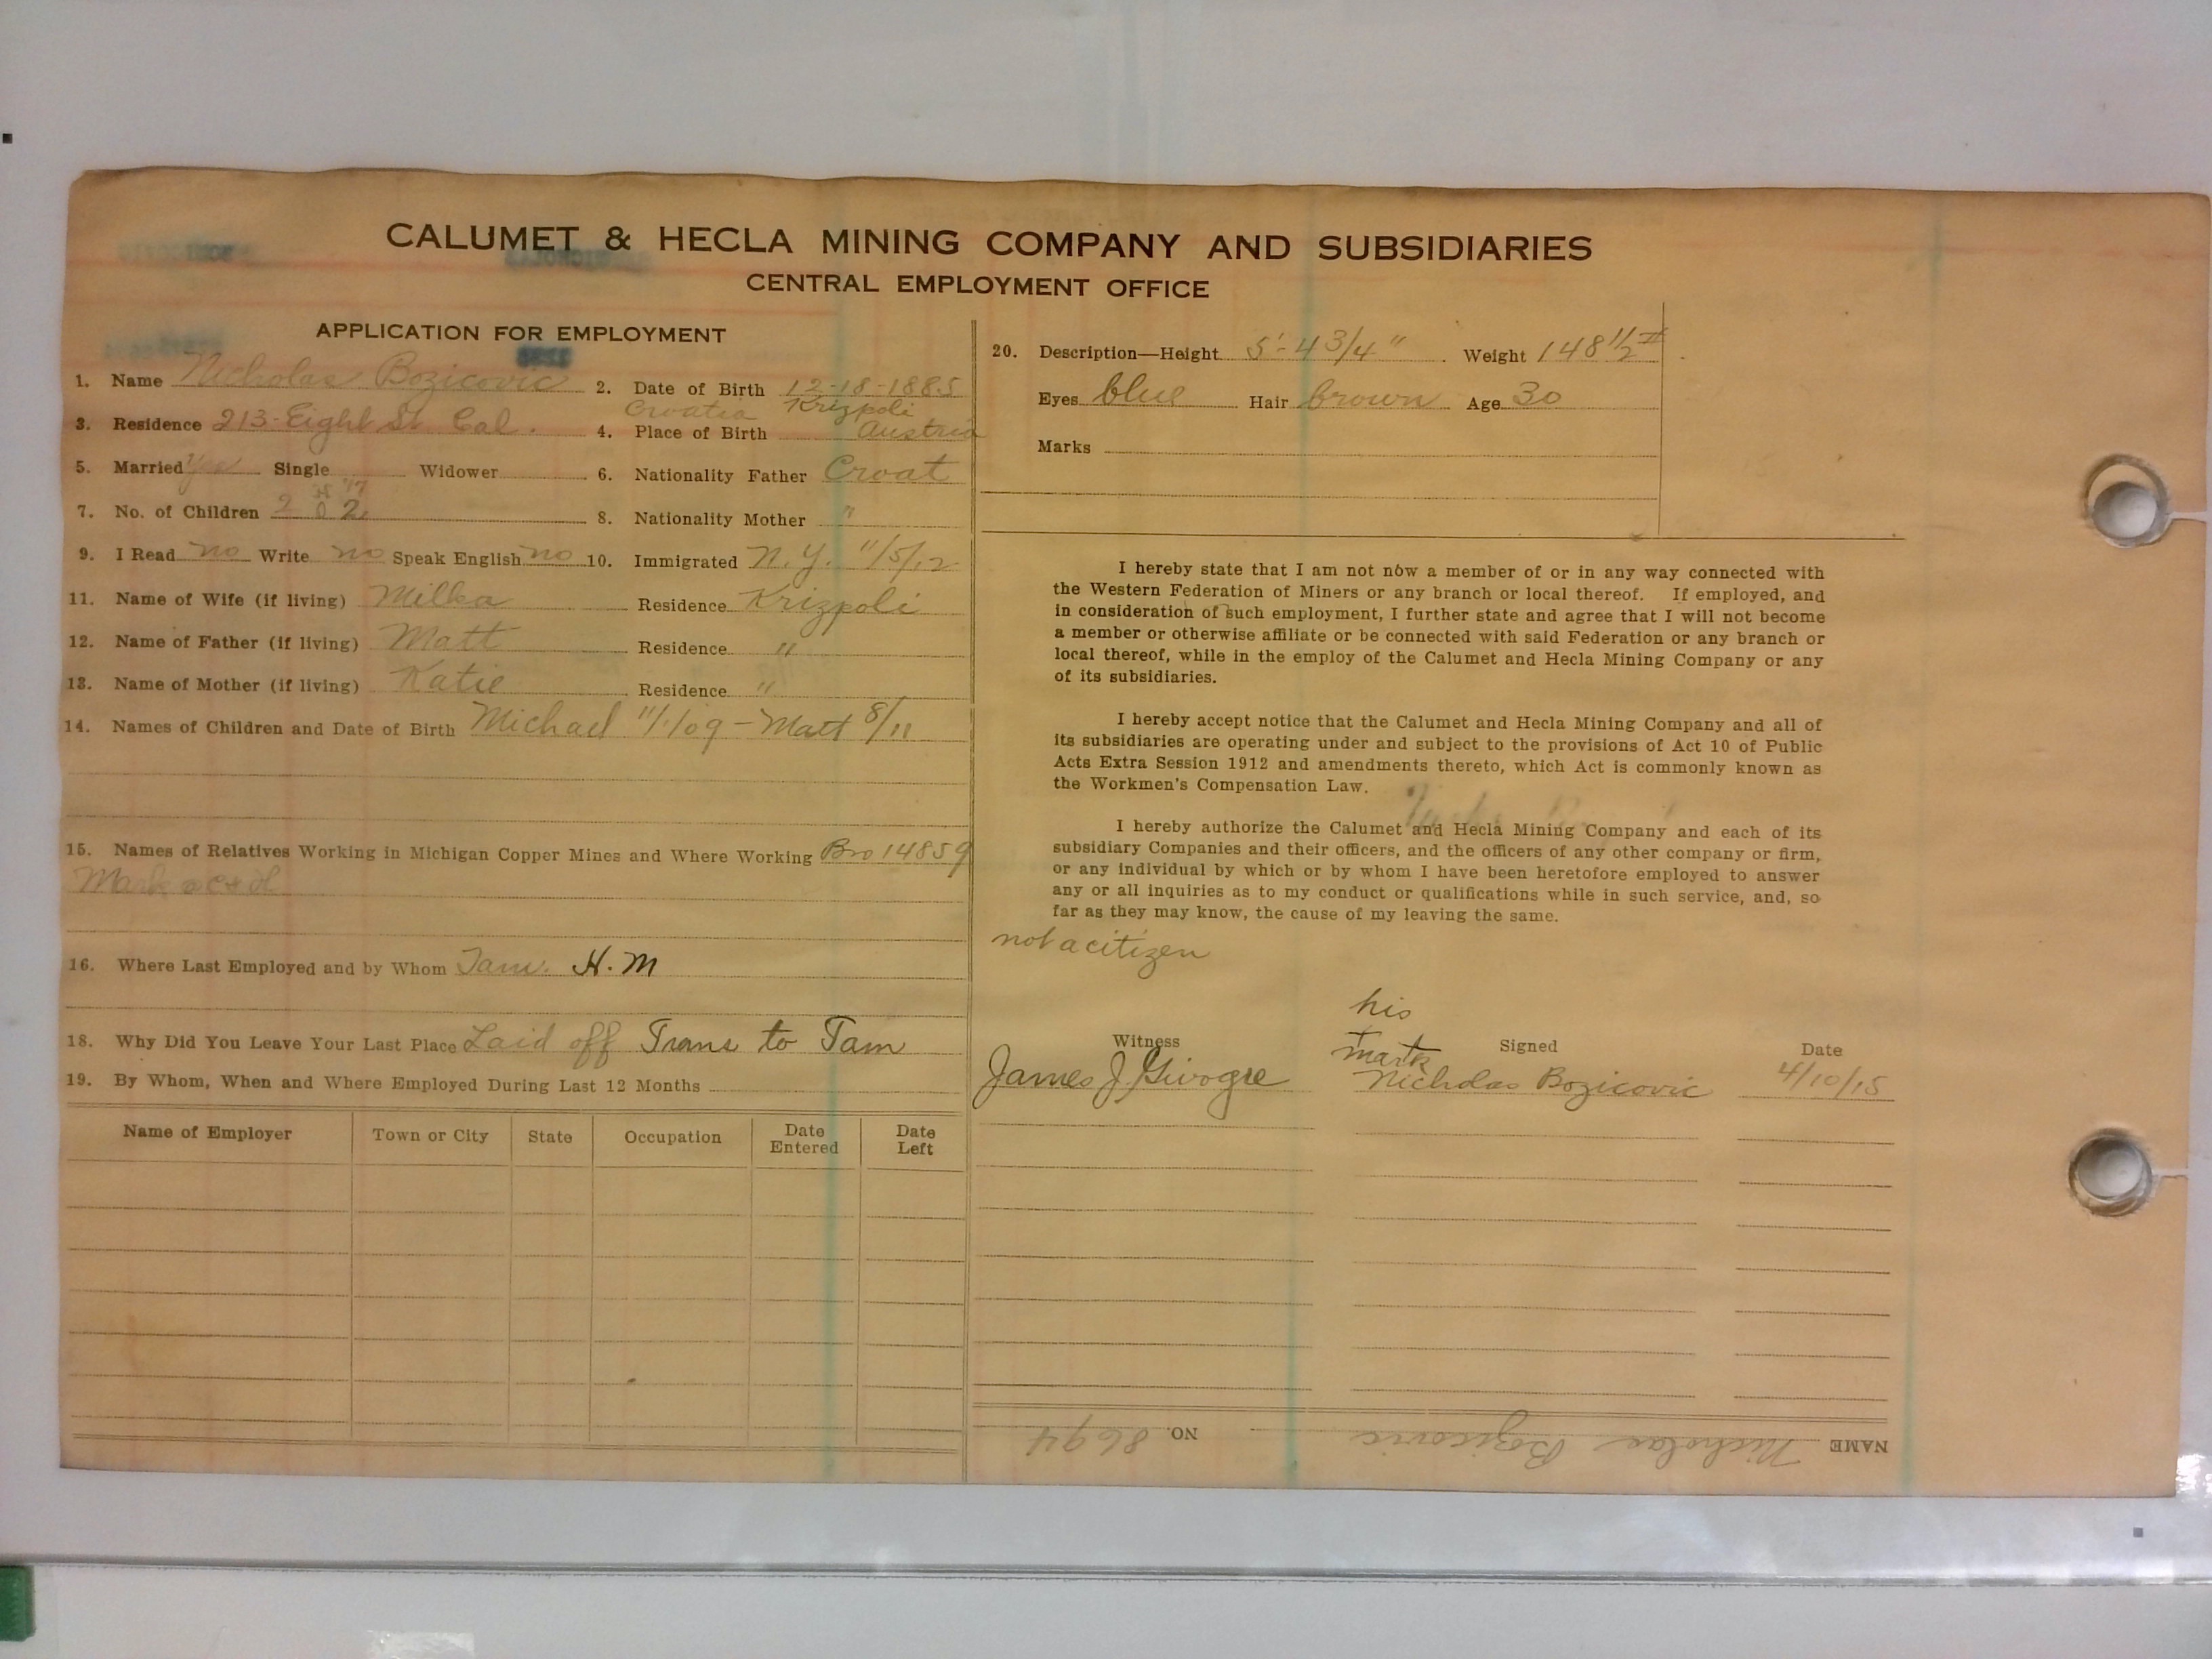 CALUMET & HECLA MINING COMPANY AND SUBSIDIARIES
CENTRAL EMPLOYMENT OFFICE
APPLICATION FOR EMPLOYMENT
1. Name Nicholas Bozicovic 2. Date of Birth 12-18-1885
Croatia Krizpoli
3. Residence 213-Eight St Cal. 4. Place of Birth Austria
5. Married Yes Single Widower 6. Nationality Father Croat
7. No. of Children 2 0 2 8. Nationality Mother "
9. I Read no Write no Speak English no 10. Immigrated N.Y. 11/5/12
11. Name of Wife (if living) Milka Residence Krizpoli
12. Name of Father (if living) Matt Residence "
13. Name of Mother (if living) Katie Residence "
14. Names of Children and Date of Birth Michael 11/1/09 - Matt 8/11
15. Names of Relatives Working in Michigan Copper Mines and Where Working Bro 14859
Mark @ C+H
16. Where Last Employed and by Whom Tam. H.M
18. Why Did You Leave Your Last Place Laid off Trans to Tam
19. By Whom, When and Where Employed During Last 12 Months
Name of Employer Town or City State Occupation Date Entered Date Left
20. Description—Height 5'-4 3/4" Weight 148 1/2 #
Eyes blue Hair brown Age 30
Marks
I hereby state that I am not now a member of or in any way connected with
the Western Federation of Miners or any branch or local thereof. If employed, and
in consideration of such employment, I further state and agree that I will not become
a member or otherwise affiliate or be connected with said Federation or any branch or
local thereof, while in the employ of the Calumet and Hecla Mining Company or any
of its subsidiaries.
I hereby accept notice that the Calumet and Hecla Mining Company and all of
its subsidiaries are operating under and subject to the provisions of Act 10 of Public
Acts Extra Session 1912 and amendments thereto, which Act is commonly known as
the Workmen's Compensation Law.
I hereby authorize the Calumet and Hecla Mining Company and each of its
subsidiary Companies and their officers, and the officers of any other company or firm,
or any individual by which or by whom I have been heretofore employed to answer
any or all inquiries as to my conduct or qualifications while in such service, and, so
far as they may know, the cause of my leaving the same.
not a citizen
his
Witness Signed Date
mark
James J. Nicholas Bozicovic 4/10/15
NAME Nicholas Bozicovic NO. 8694